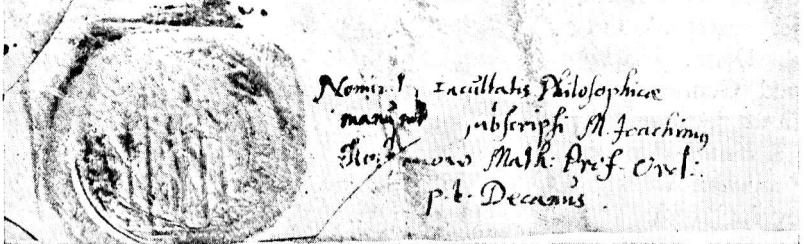 Nomine Facultatis Philosophicæ
subscripsi M. Joachimus
Math: Prof. Ord:
p. t. Decanus.